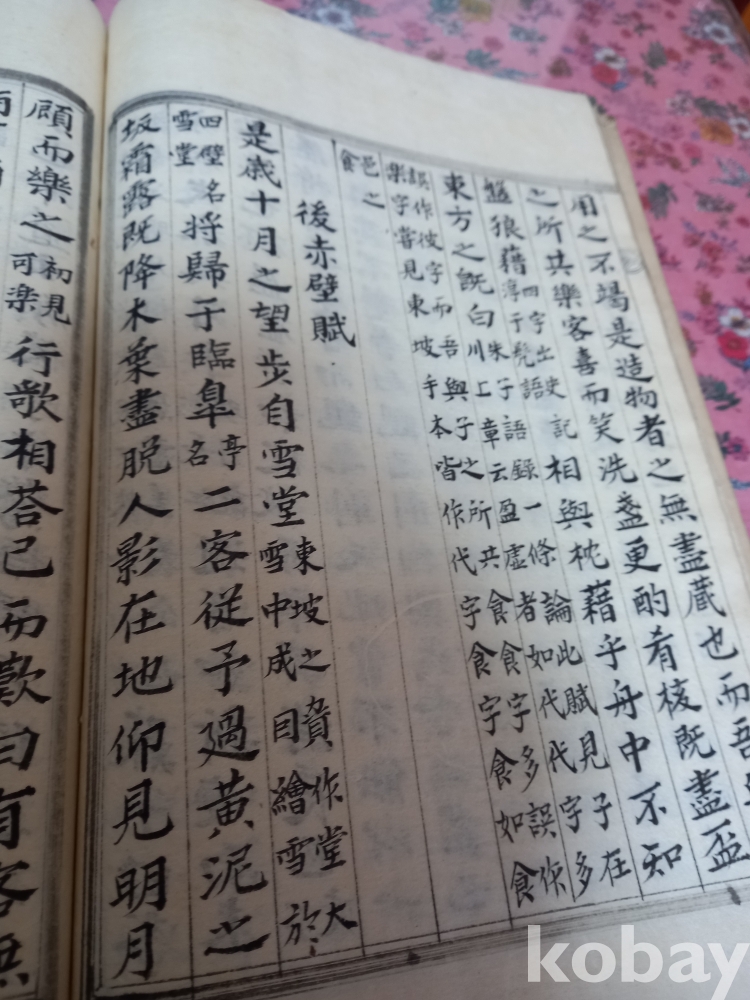 用之不竭是造物者之無盡藏也而吾
之所共樂客喜而笑洗盞更酌肴核既盡盃
盤狼藉四字出史記淳于髡語相與枕藉乎舟中不知
東方之既白朱子語錄一條論此賦見子在川上章云盈虛者如代代字多
誤作彼字而吾與子之所共食食字多誤作樂字嘗見東坡手本皆作代字食字食如食
邑之食
後赤壁賦
是歲十月之望步自雪堂東坡之貲作堂大雪中成目繪雪於
四壁名雪堂將歸于臨皐亭名二客從予過黃泥之
坂霜露既降木葉盡脫人影在地仰見明月
顧而樂之初見可樂行歌相荅已而歎曰有客無
kobay